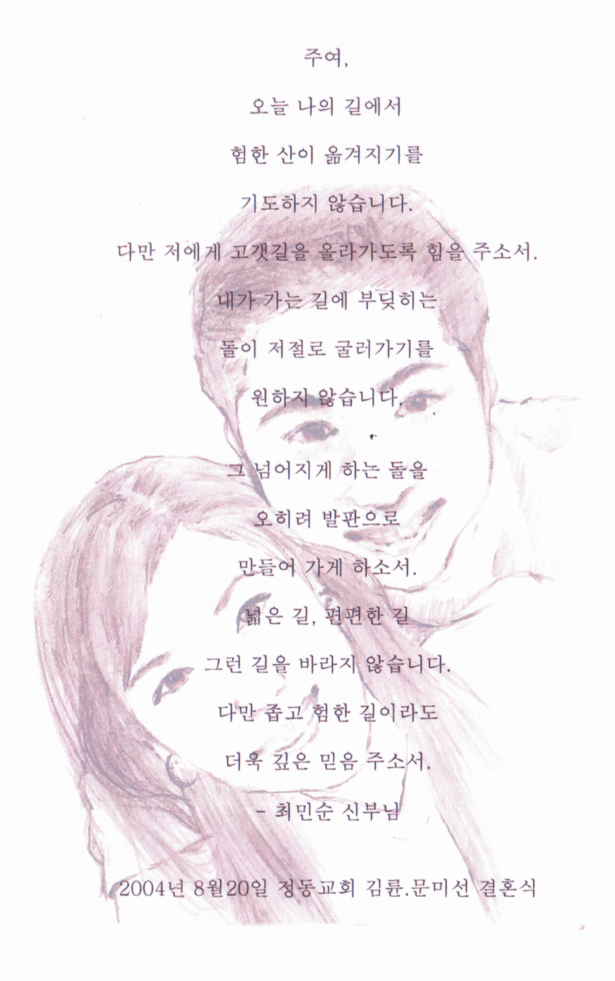 주여,
오늘 나의 길에서
험한 산이 옮겨지기를
기도하지 않습니다.
다만 저에게 고갯길을 올라가도록 힘을 주소서.
내가 가는 길에 부딪히는
돌이 저절로 굴러가기를
원하지 않습니다.
그 넘어지게 하는 돌을
오히려 발판으로
만들어 가게 하소서.
넓은 길, 편편한 길
그런 길을 바라지 않습니다.
다만 좁고 험한 길이라도
더욱 깊은 믿음 주소서.
- 최민순 신부님
2004년 8월20일 정동교회 김륜.문미선 결혼식